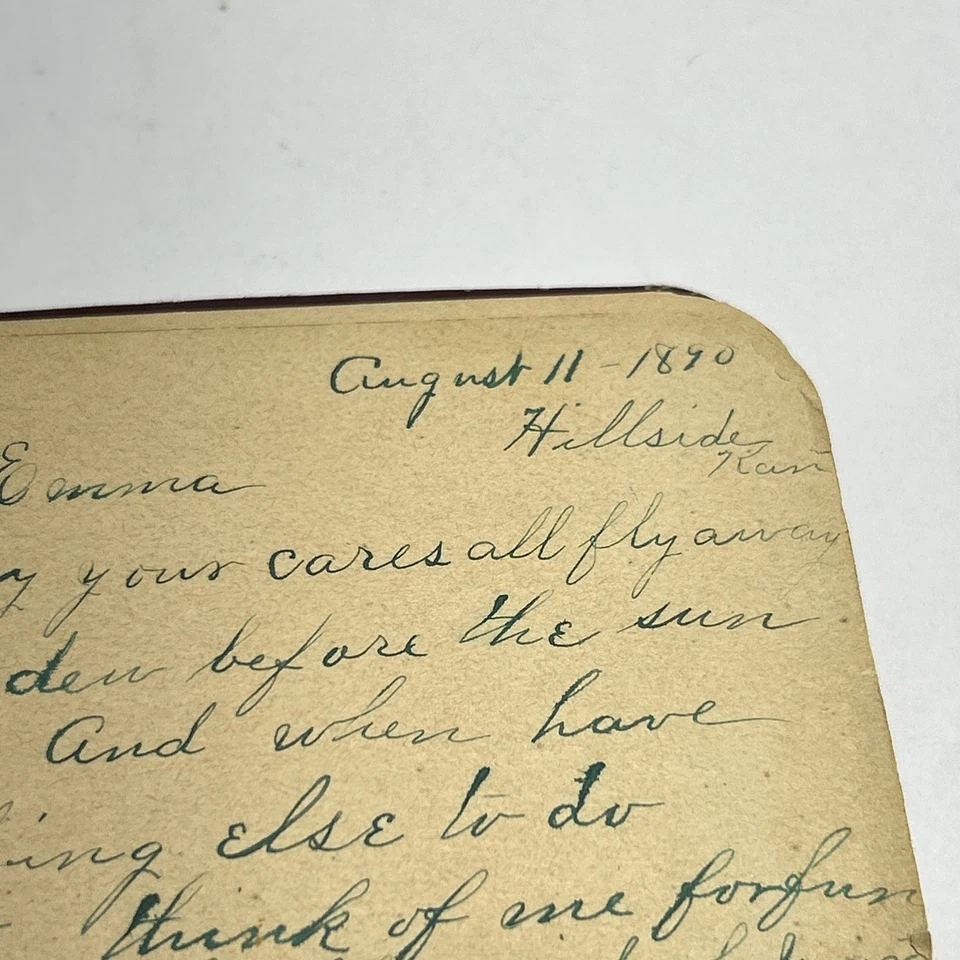 August 11 - 1890
Hillside
Kan
Emma
your cares all fly away
dew before the sun
And when have
ing else to do
think of me for fun